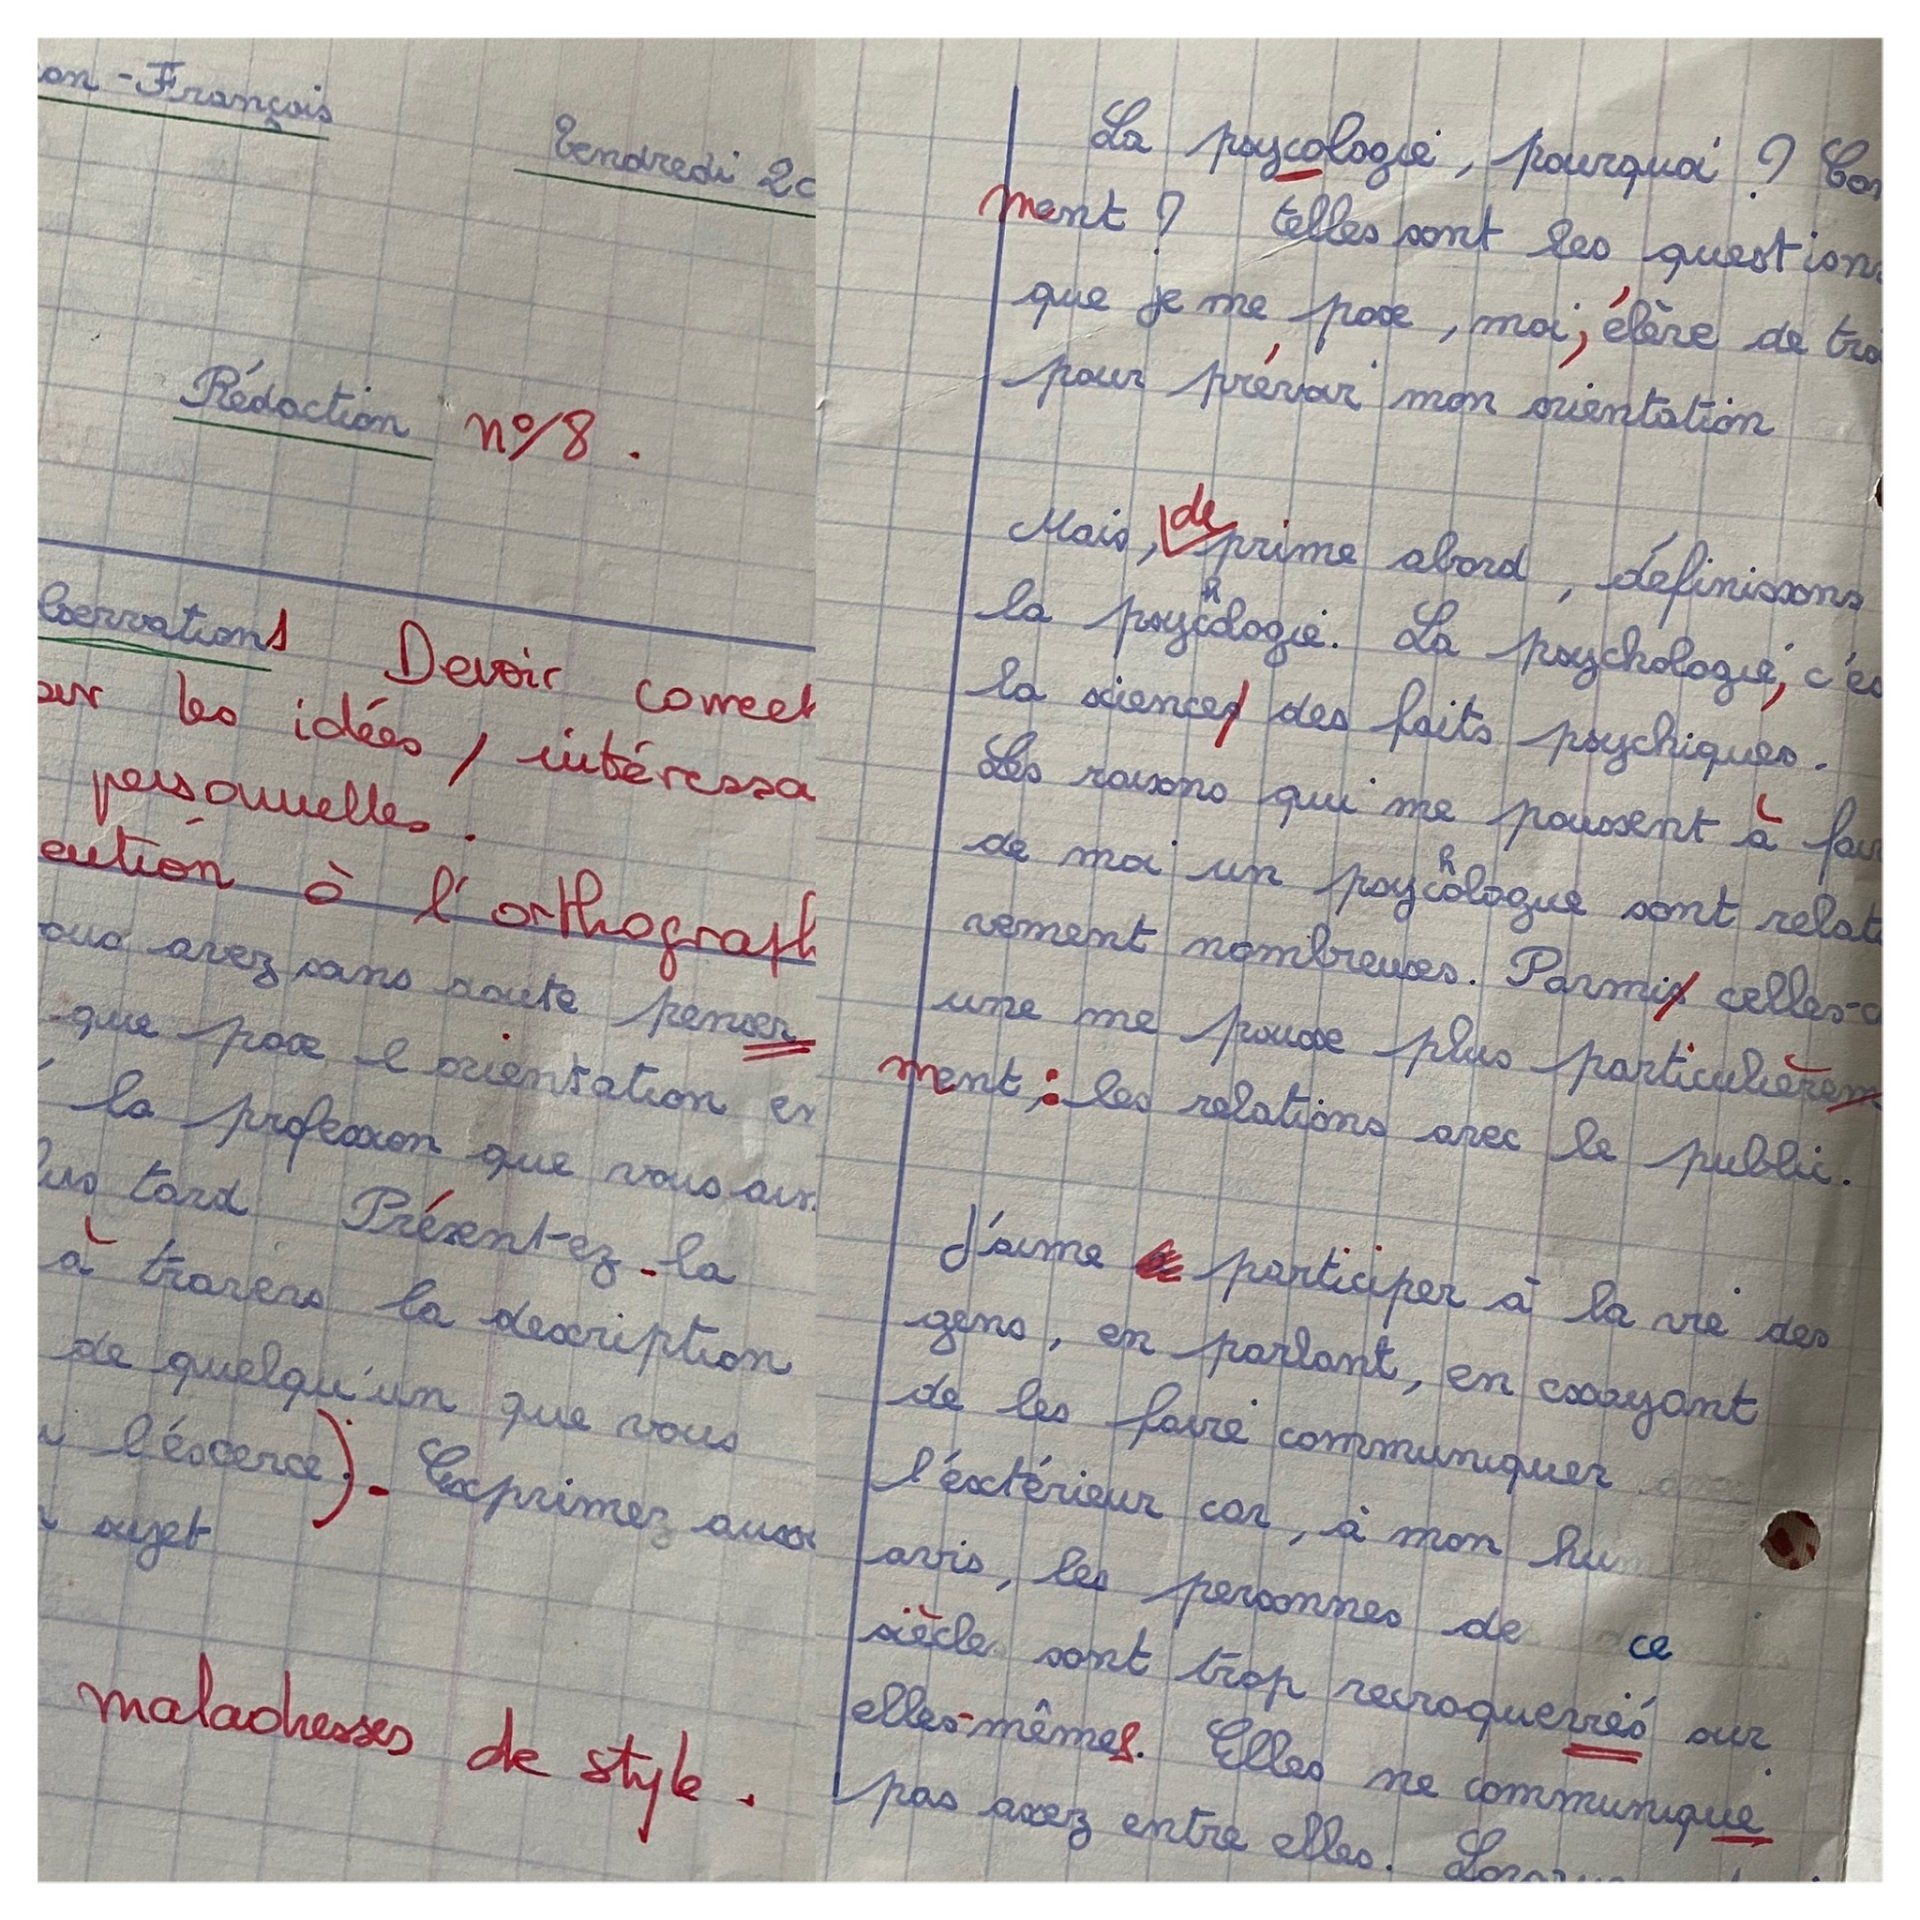 on - Français
Vendredi 20
Rédaction n°/8.
bservations Devoir correct
sur les idées, intéressa
personnelles.
ention à l'orthograph
ous avez sans doute penser
que pose l'orientation en
la profession que vous
lus tard Présent-ez - la
à travers la description
de quelqu'un que vous
l'éxerce). - Exprimez aussi
sujet
maladresses de style.
La psycologie, pourquoi ? Com
ment ? telles sont les questions
que je me pose, moi, élève de
pour prévoir mon orientation
Mais, de prime abord, définissons
la psychologie. La psychologie, c'es
la science des faits psychiques.
Les raisons qui me poussent à fai
de moi un psychologue sont relati
vement nombreuses. Parmis celles-c
une me pousse plus particulièrem
ment : les relations avec le public.
J'aime participer à la vie des
gens, en parlant, en essayant
de les faire communiquer avec
l'éxtérieur car, à mon hum
avis, les personnes de ce
siècle sont trop recroquevriés sur
elles-mêmes. Elles ne communique
pas assez entre elles.